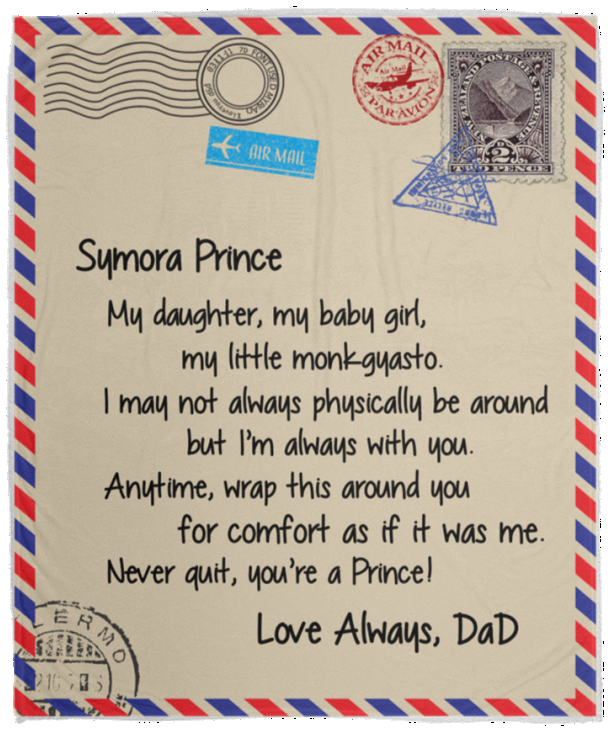 AIR MAIL
Air Mail
PAR AVION
AIR MAIL
NEW ZEALAND POSTAGE & REVENUE
2
TWO PENCE
Symora Prince
My daughter, my baby girl,
my little monk-gyasto.
I may not always physically be around
but I'm always with you.
Anytime, wrap this around you
for comfort as if it was me.
Never quit, you're a Prince!
Love Always, DaD
LERMO